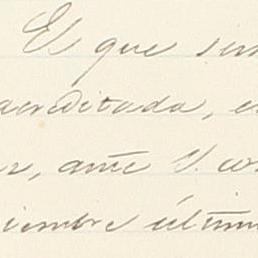 El que sus
acreditada, es
r, ante V. con
iembre último